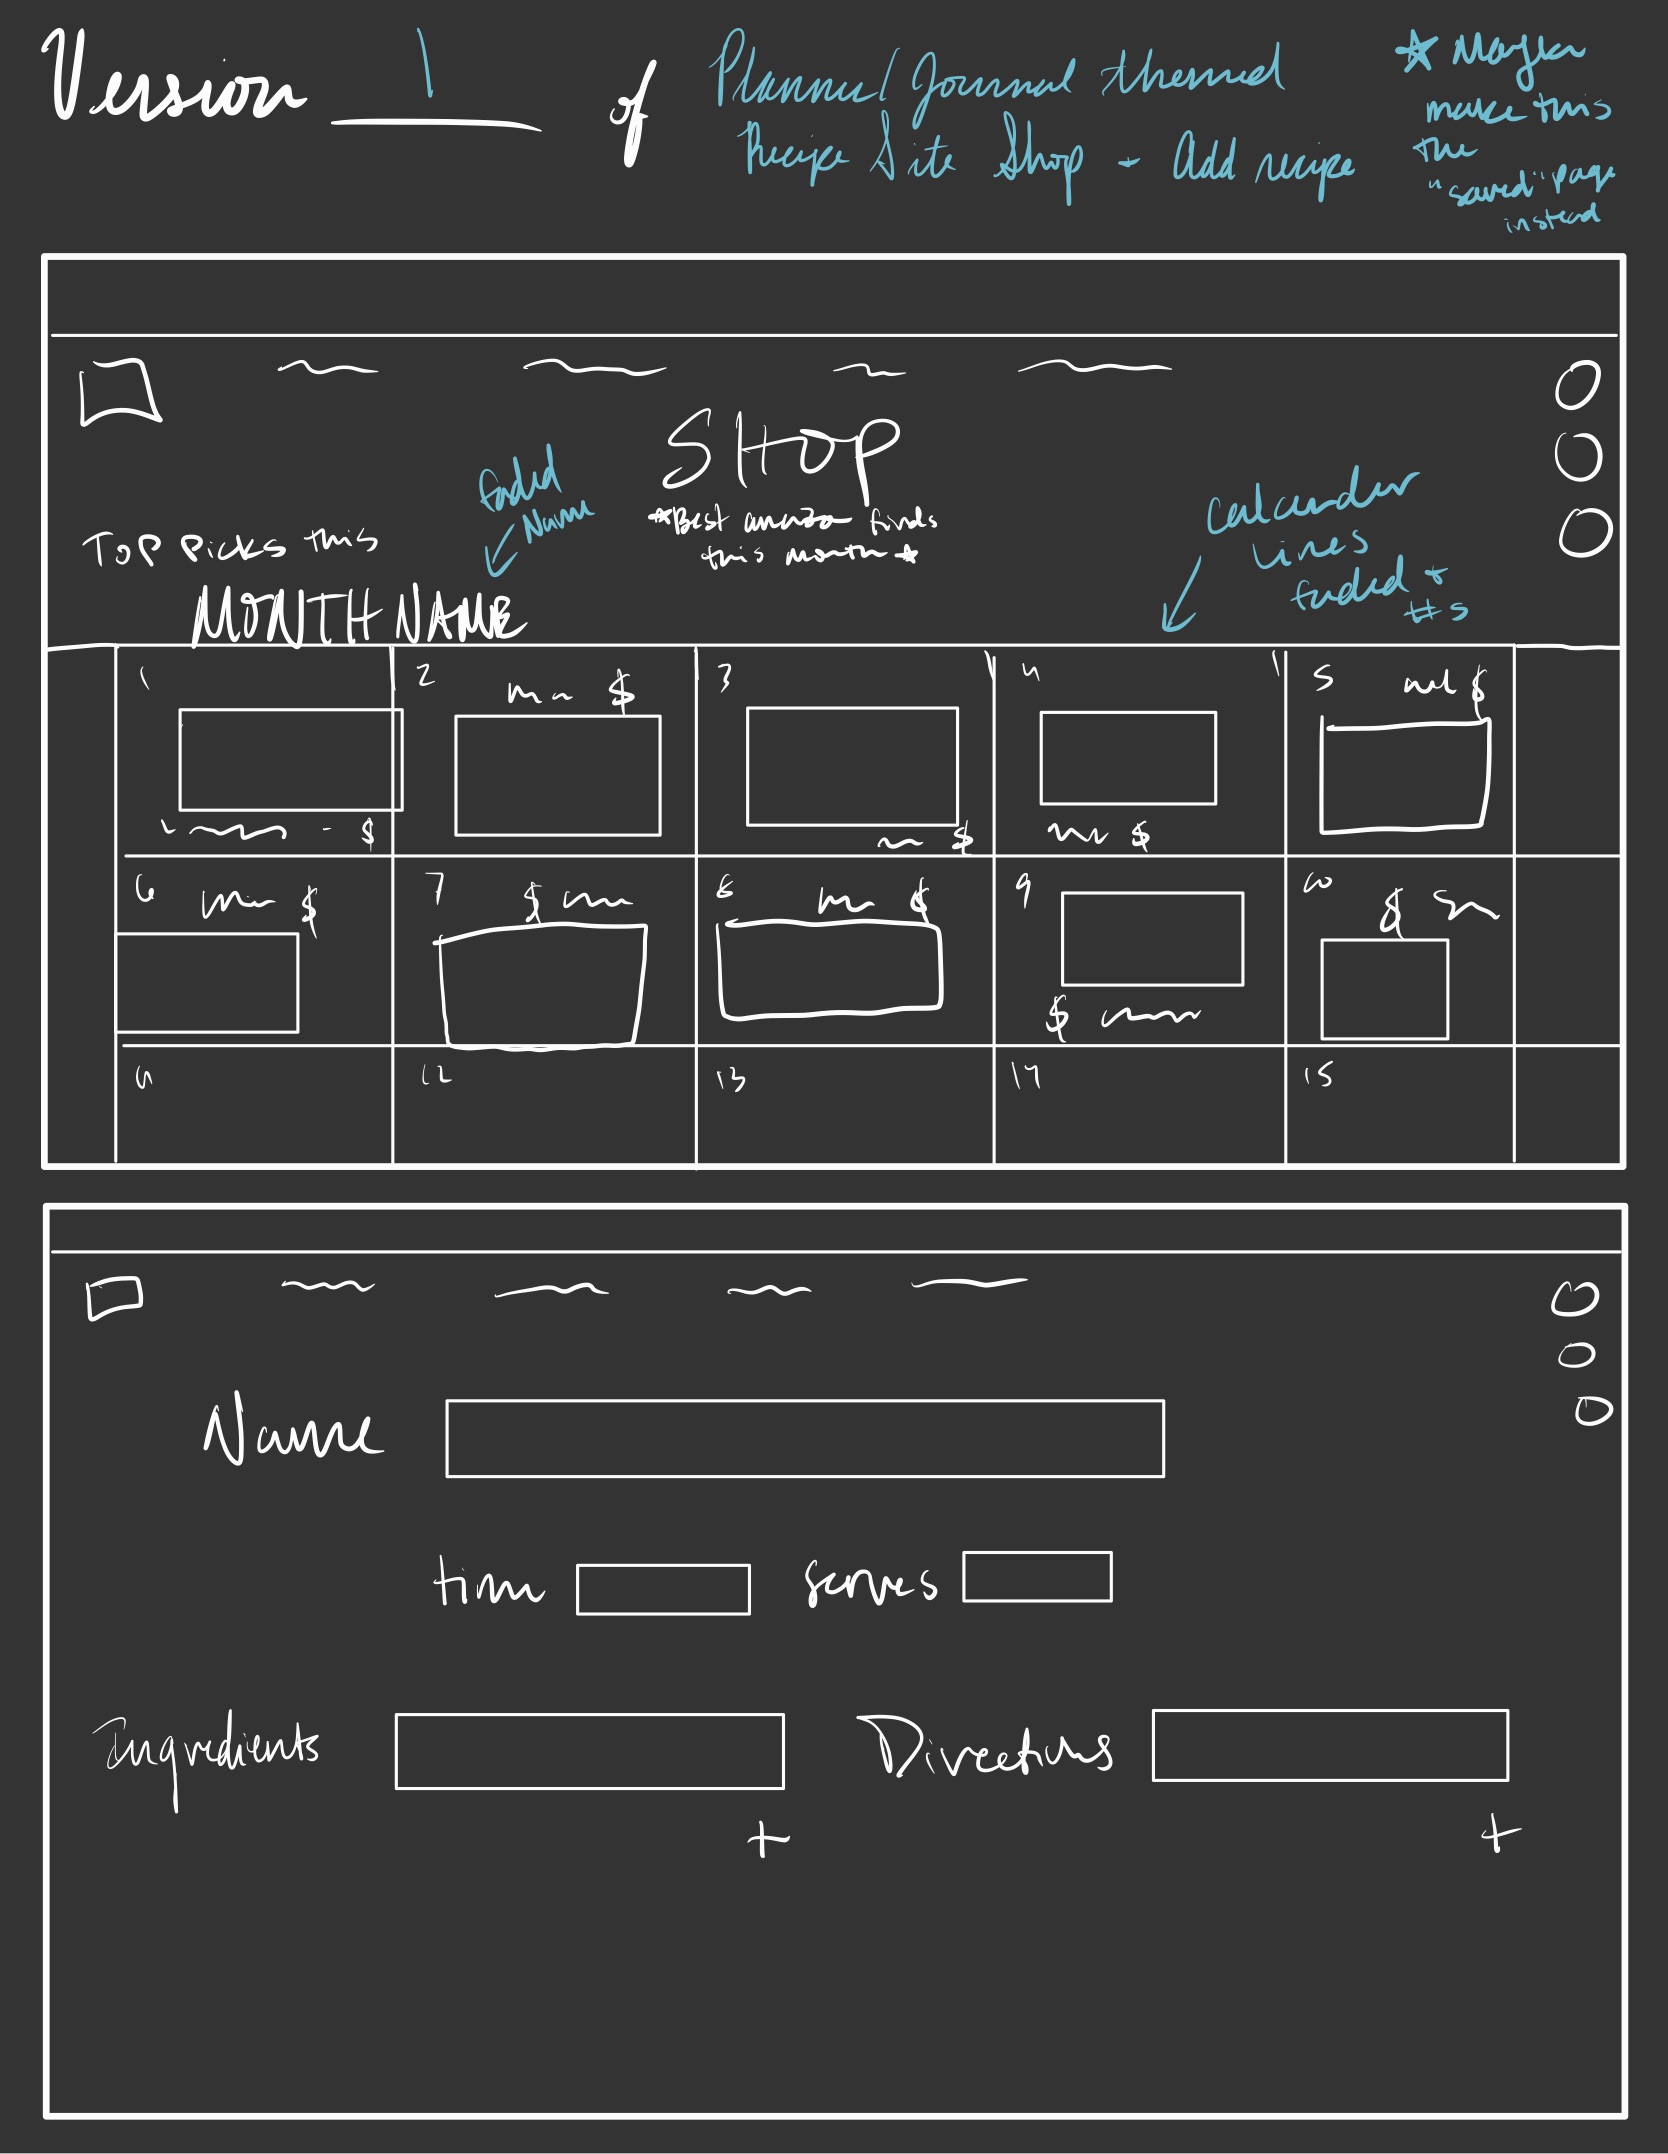 Version 1 of Planner/Journal themed
Recipe Site Shop - Add recipe
* Maybe
make this
the
"saved" page
instead
SHOP
*Best amazon finds
this month*
faded
Name
calander
lines
faded +
#s
TOP PICKS this
MONTH NAME
1 2 $ 3 4 5 $
$ $ $
6 $ 7 $ 8 $ 9 10 $
$
11 12 13 14 15
Name
time serves
Ingredients Directions
+ +